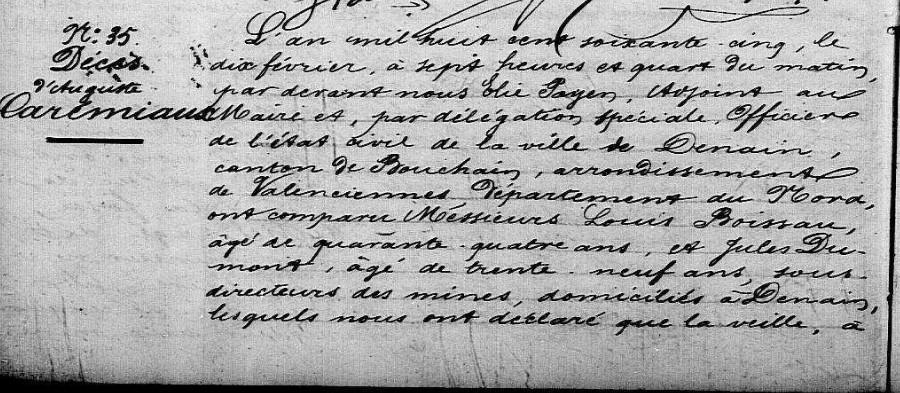 N.: 35
Décès
d'Auguste
Carémiaux
L'an mil huit cent soixante-cinq, le
dix février, à sept heures et quart du matin,
par devant nous Elie Payen, Adjoint au
Maire et, par délégation spéciale, Officier
de l'état civil de la ville de Denain,
canton de Bouchain, arrondissement
de Valenciennes, Département du Nord,
ont comparu Messieurs Louis Boissau,
âgé de quarante-quatre ans, et Jules Du-
mont, âgé de trente-neuf ans, sous-
directeurs des mines, domiciliés à Denain,
lesquels nous ont déclaré que la veille, à